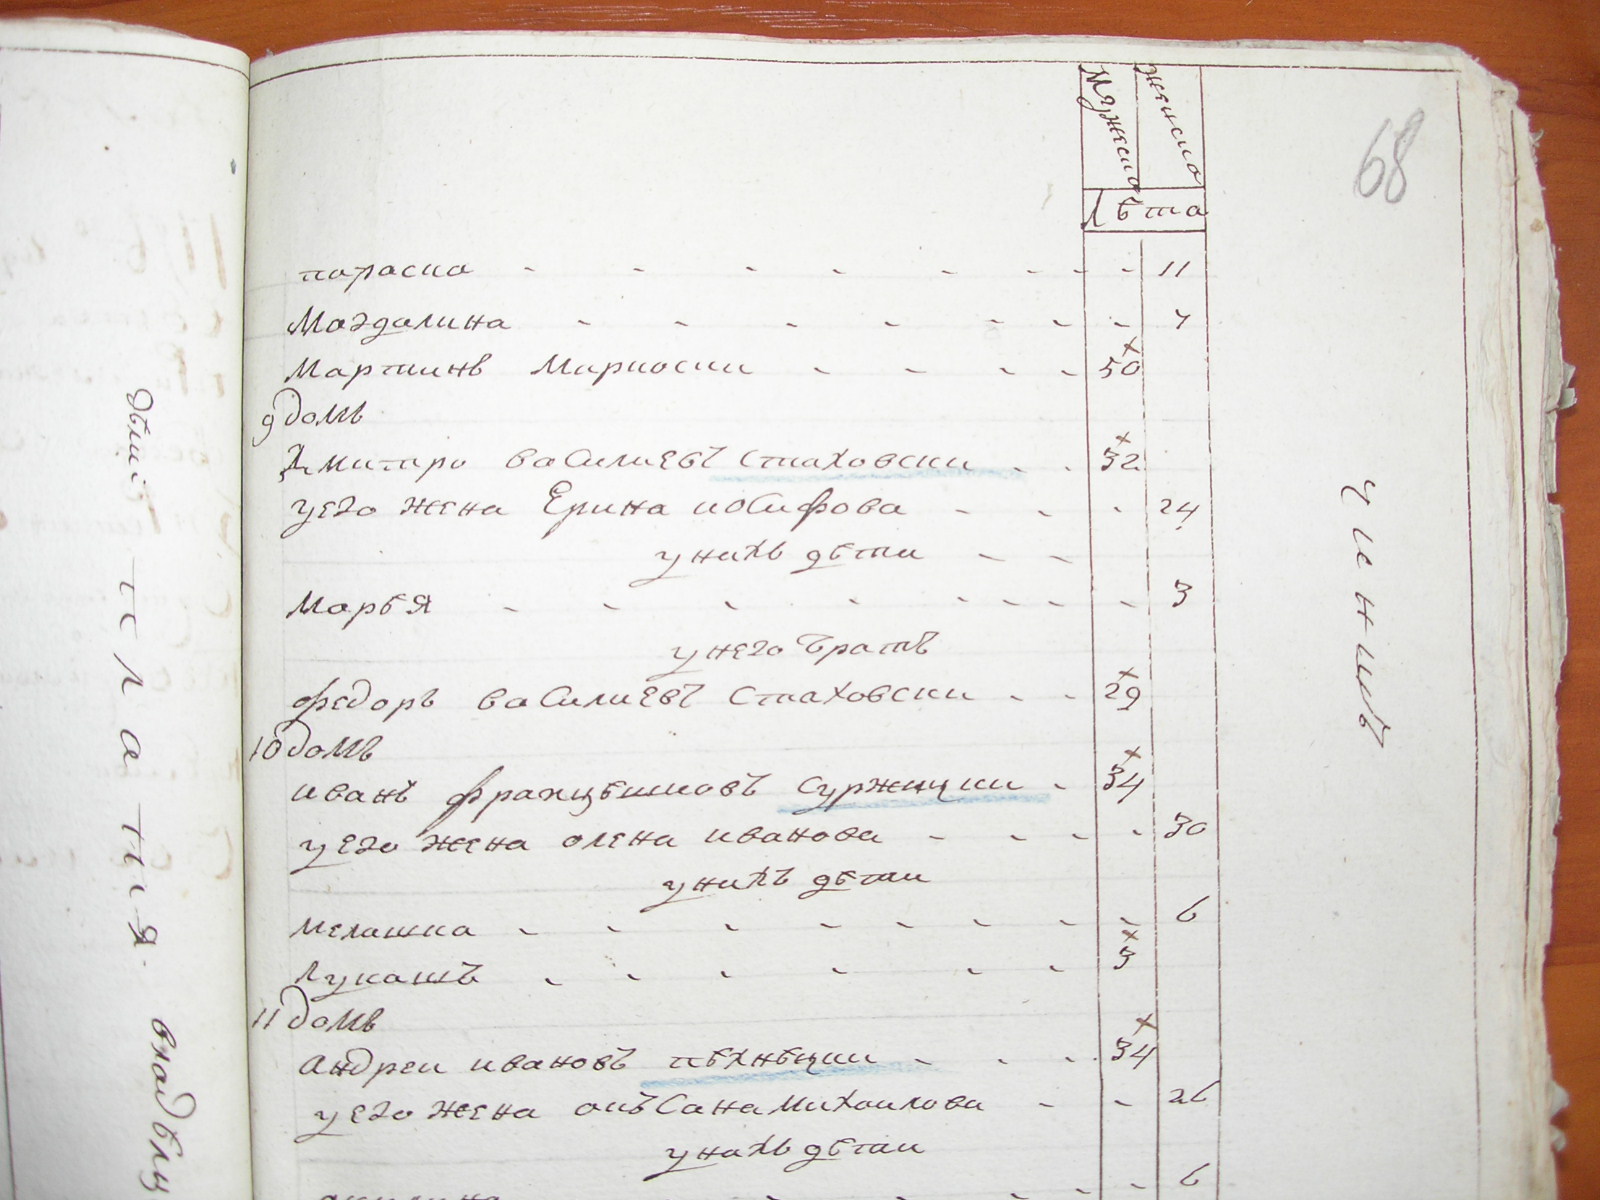 68
Мужеска
женска
лѣта
параска 11
Магдалина 7
Мартинъ Маркоски 50
9 домъ
Дмитро василиевъ стаховски 32
у его жена Ерина иосифова 24
у нихъ дѣти
Марѣя 3
у него братъ
федоръ василиевъ стаховски 29
10 домъ
иванъ францѣшковъ суржицки 34
у его жена олена иванова 30
у нихъ дѣти
мелашка 6
лукашъ 3
11 домъ
андреи ивановъ пѣхнѣцки 34
у его жена окъсана михаилова 26
у нихъ дѣти
6
чикинъ